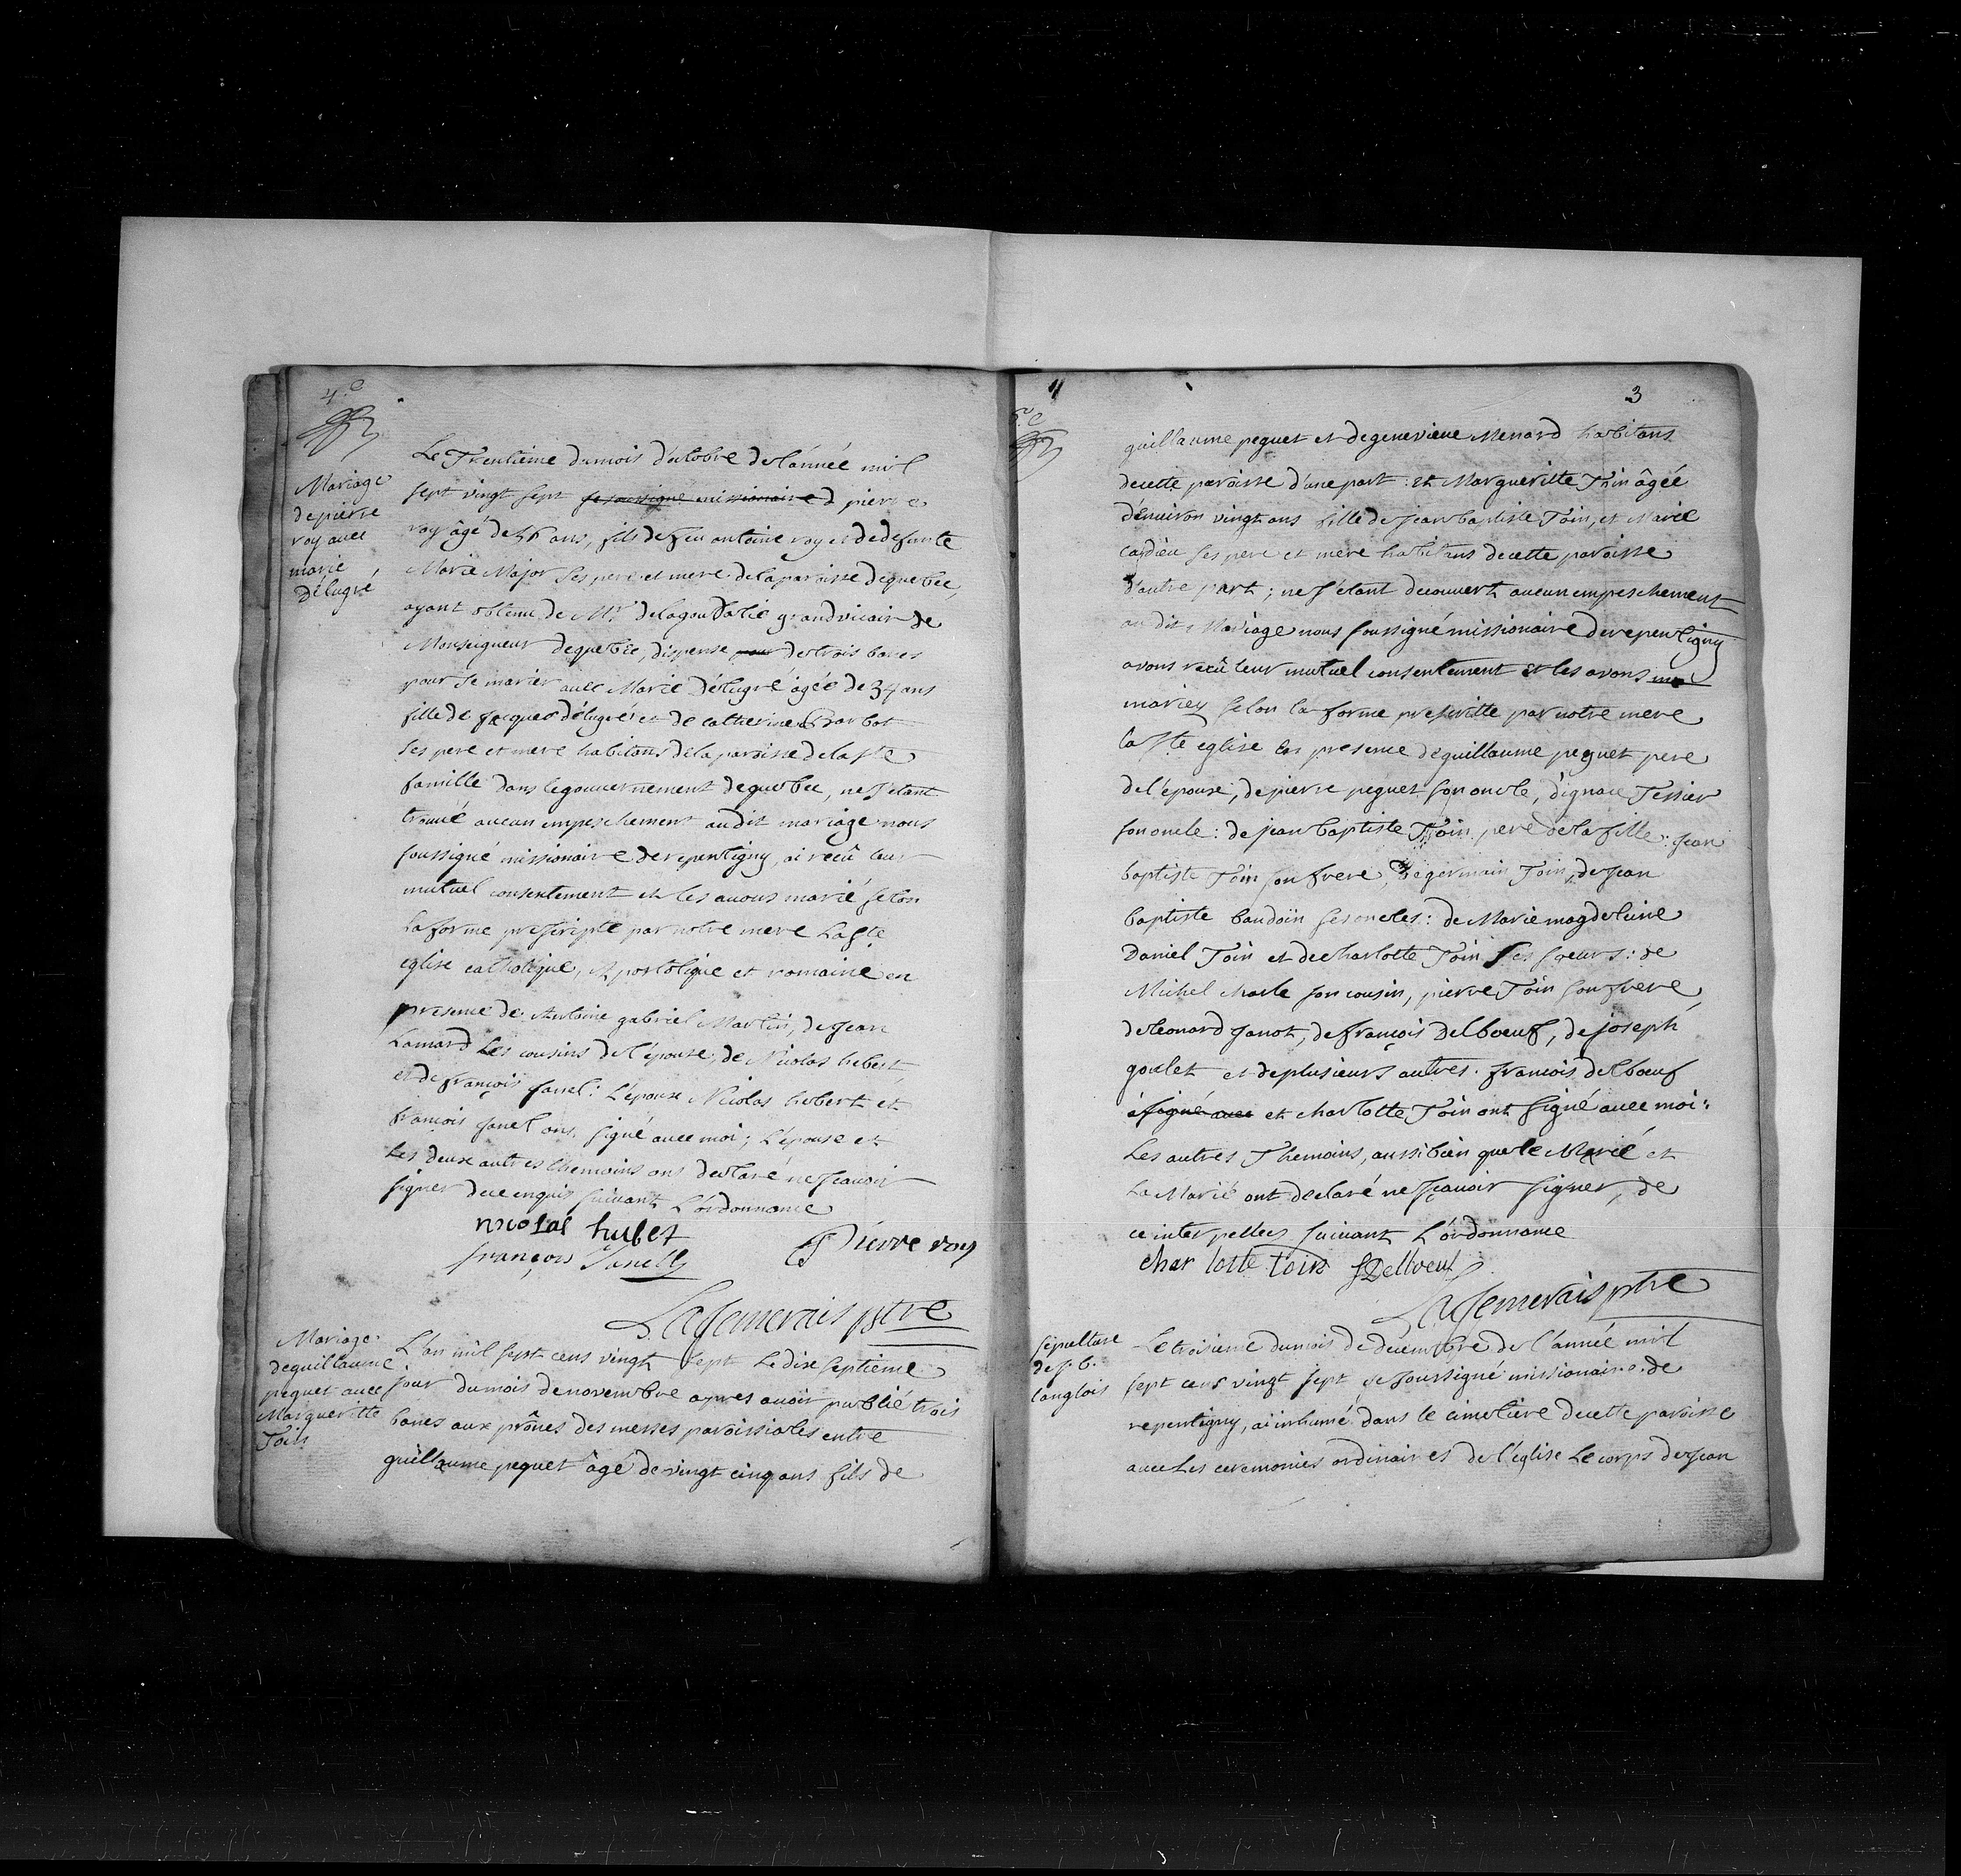 4.e
Mariage
de pierre
roy avec
marie
Délugré
Le Trentieme du mois d'octobre de l'année mil
sept vingt sept je soussigné missionaire d pierre
roy âgé de 56 ans, fils de feu antoine roy et de defunte
Marie Major ses pere et mere de la paroisse de quebec,
ayant obtenu de Mr. delagoudalie grand vicair de
Monseigneur de quebec, dispense pour de trois bancs
pour se marier avec Marie Délugré âgée de 34 ans
fille de Jacques délugré et de catherine Barbot
ses pere et mere habitans de la paroisse de la ste
famille dans le gouvernement de quebec, ne s'etant
trouvé aucun empeschement audit mariage nous
soussigné missionaire de repentigny, ai recû leur
mutuel consentement et les avons marié selon
La forme prescripte par notre mere La Ste
eglise catholique, Apostolique et romaine en
presence de Antoine gabriel Martin, de Jean
Lamard Les cousins de l'épouse, de Nicolas hebert,
et de françois fanel: L'époux Nicolas hebert et
françois fanel ont signé avec moi; L'épouse et
Les deux autres themoins ont declaré ne scavoir
signer de ce enquis suivant L'ordonnance
nicolas hubet
françois Janelly
Pierre roy
La Jemerais ptre
Mariage
de guillaume
peguet avec
Margueritte
Toin
L'an mil sept cens vingt sept Le dix septieme
jour du mois de novembre apres avoir publié trois
bancs aux prônes des messes paroissiales entre
guillaume peguet âgé de vingt cinq ans fils de
4
3
5.e
guillaume peguet et de genevieve Menard habitans
de cette paroisse d'une part: et Margueritte Toin âgée
d'environ vingt ans fille de jean baptiste Toin, et Marie
cardieu ses pere et mere habitans de cette paroisse
d'autre part; ne s'étant decouvert aucun empeschement
au dit Mariage nous soussigné missionaire de repentigny
avons recû leur mutuel consentement et les avons
mariez selon la forme prescritte par notre mere
la Ste eglise en presence de guillaume peguet pere
de l'epoux, de pierre peguet son oncle, d'ignace Tessier
son oncle: de jean baptiste Toin pere de la fille: jean
baptiste Toin son frere, de germain Toin, de jean
baptiste baudoin ses oncles: de Marie magdeleine
Daniel Toin et de charlotte Toin ses soeurs: de
Michel charle son cousin, pierre Toin son frere,
de leonard Janot, de françois Delboeuf, de joseph
goulet et de plusieurs autres. francois delboeuf
a signé avec et charlotte Toin ont signé avec moi:
Les autres Themoins, aussi bien que le Marié et
La Marié ont declaré ne sçavoir signer, de
ce interpellez suivant L'ordonnance
char lotte toin f Delboeuf
La Jemerais ptre
sepulture
de j. b.
langlois
Le troisieme du mois de decembre de l'année mil
sept cens vingt sept je soussigné missionaire de
repentigny, ai inhumé dans le cimetiere de cette paroisse
avec Les ceremonies ordinaires de l'eglise Le corps de jean